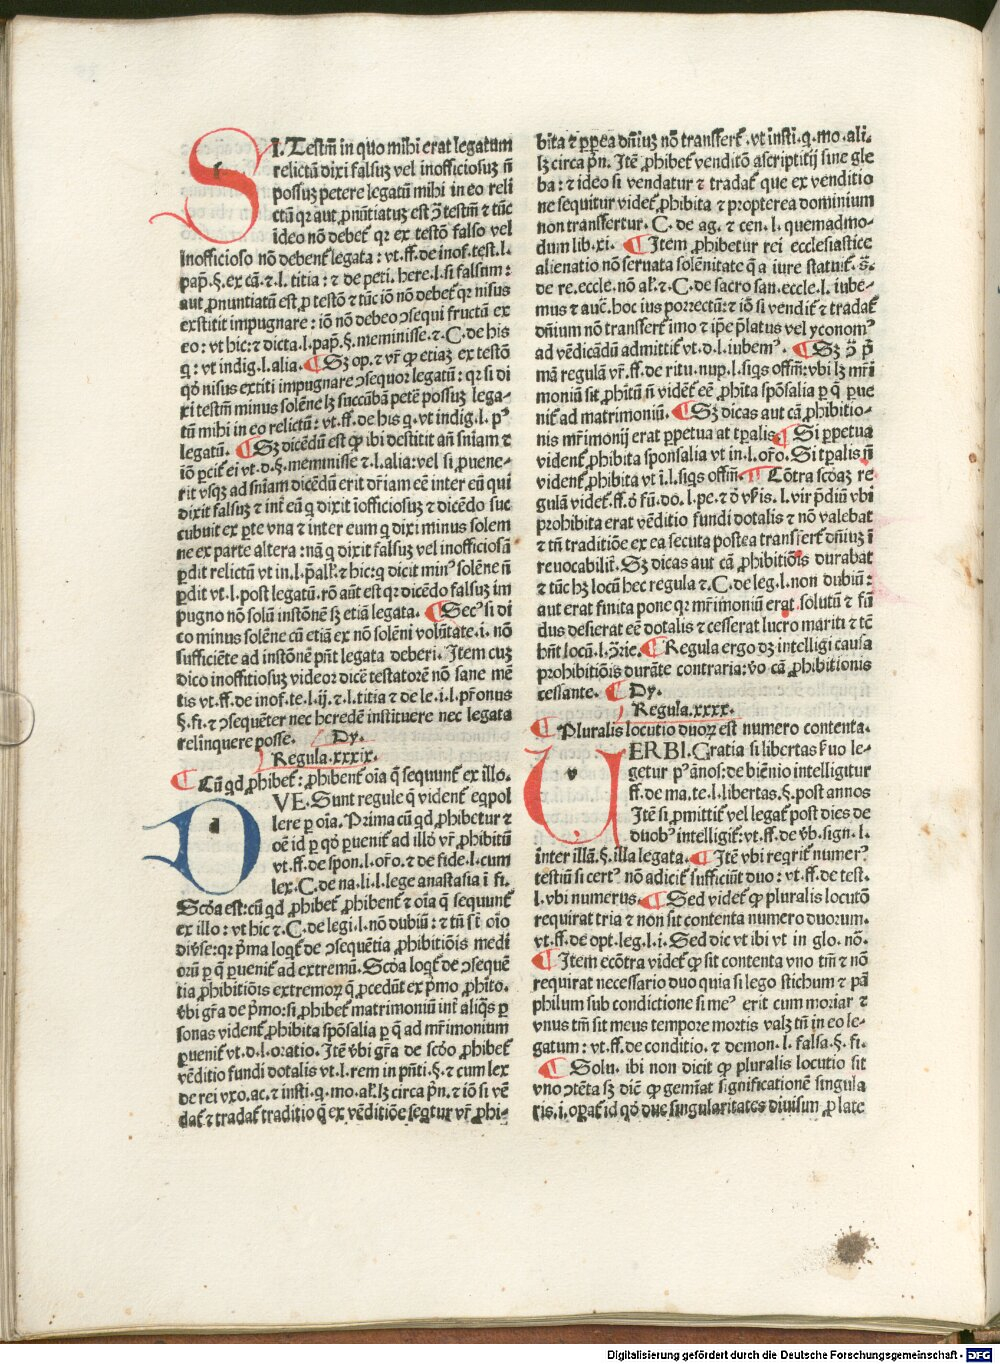 SI. Testm̄ in quo mihi erat legatum
relictū dixi falsuz vel inofficiosuz n̄
possuz petere legatū mihi in eo reli
ctū qr aut ꝓnūtiatuz est ꝯ̄ testm̄ ⁊ tūc
ideo nō debet̄ qr ex testō falso vel
inofficioso nō debent̄ legata : vt.ff.de inof.test.l.
pap̄.§.ex cā.⁊.l. titia : ⁊ de peti. here.l.si falsum :
aut ꝓnuntiatū est ꝓ testō ⁊ tūc iō nō debet̄ qr nisus
exstitit impugnare : iō nō debeo ꝯsequi fructū ex
eo : vt hic: ⁊ dicta.l.pap̄.§.meminisse.⁊.C.de his
q̄ : vt indig.l.alia. ¶ Sꝫ op.⁊ vr̄ ꝙ etiaz ex testō
qd̓ nisus extiti impugnare ꝯsequor legatū : qr si di
xi testm̄ minus solēne lꝫ succūbā petē possuz lega-
tū mihi in eo relictū : vt.ff.de his q̄.vt indig.l. pꝰ
legatū. ¶ Sꝫ dicēdū est ꝙ ibi destitit an̄ sniam ⁊
iō ꝑcit̄ ei vt.d.§.meminisse ⁊.l.alia: vel si ꝓuene-
rit vsqꝫ ad sniam dicēdū erit dr̄iam eē inter eū qui
dixit falsuz ⁊ int̄ eū q̄ dixit īofficiosuz ⁊ dicēdo suc
cubuit ex ꝑte vna ⁊ inter eum q̄ dixi minus solem
ne ex parte altera : nā q̄ dixit falsuz vel inofficiosū
ꝑdit relictū vt in.l.ꝑall̓.⁊ hic: q̄ dicit minꝰ solēne n̄
ꝑdit vt.l.post legatū.rō aūt est qr dicēdo falsuz im
pugno nō solū instōnē sꝫ etiā legata. ¶ Secꝰ si di
co minus solēne cū etiā ex nō solēni volūtate.i. nō
sufficiēte ad instōnē pn̄t legata deberi. Item cuz
dico inoffitiosuz videor dicē testatorē nō sane mē
tis vt.ff.de inof.te.l.ij.⁊.l.titia ⁊ de le.i.l.pr̄onus
§.fi.⁊ ꝯsequēter nec heredē instituere nec legata
relinquere posse. Dy.
Regula.xxxix.
¶ Cū qd̓ ꝓhibet̄ : ꝓhibent̄ oīa q̄ sequunt̄ ex illo.
DVE. Sunt regule q̄ vident̄ eqpol
lere ꝑ oīa. Prima cū qd̓ ꝓhibetur ⁊
oē id ꝑ qd̓ ꝑuenit̄ ad illd̓ vr̄ ꝓhibitū
vt.ff.de spon.l.or̄o.⁊ de fide.l.cum
lex.C.de na.li.l.lege anastasia ī fi.
Scd̓a est: cū qd̓ ꝓhibet̄ ꝓhibent̄ ⁊ oīa q̄ sequunt̄
ex illo : vt hic ⁊.C.de legi.l.nō dubiū : ⁊ tn̄ st̄ oīo
diūse: qr pͥma loqt̄ de ꝯsequētia ꝓhibitiōis medi
orū ꝑ q̄ ꝑuenit̄ ad extremū. Scd̓a loqt̄ de ꝯsequē
tia ꝓhibitiōis extremorꝫ q̄ ꝓcedūt ex pͥmo ꝓhito.
v̄bi gr̄a de pͥmo: si ꝓhibet̄ matrimoniū int̄ aliqͣs ꝑ
sonas vident̄ ꝓhibita spōsalia ꝑ q̄ ad mr̄imonium
ꝑuenit̄ vt.d.l.oratio. Itē v̄bi gr̄a de scd̓o ꝓhibet̄
vēditio fundi dotalis vt.l.rem in pn̄ti.§.⁊ cum lex
de rei vxo.ac.⁊ insti.q̄.mo.al̓.lꝫ circa pn̄.⁊ iō si vē
dat̄ ⁊ tradat̄ traditio q̄ ex vēditiōe seqtur vr̄ ꝓhi-
bita ⁊ ꝑꝑea dn̄iuz nō transfert̄.vt insti.q̄.mo.ali.
lꝫ circa pn̄. Itē ꝓhibet̄ venditō ascriptitij sine gle
ba : ⁊ ideo si vendatur ⁊ tradat̄ que ex venditio
ne sequitur videt̄ ꝓhibita ⁊ propterea dominium
non transfertur. C. de ag.⁊ cen.l. quemadmo-
dum lib.xi. ¶ Item ꝓhibetur rei ecclesiastice
alienatio nō seruata solēnitate q̄ a iure statuit̄.s̄.
de re.eccle.nō al̓.⁊.C.de sacro san.eccle.l. iube-
mus ⁊ auē.hoc ius porrectū: ⁊ iō si vendit̄ ⁊ tradat̄
dn̄ium nō transfert̄ imo ⁊ ip̄e p̄latus vel yconomꝰ
ad vēdicādū admittit̄ vt.d.l.iubemꝰ. ¶ Sꝫ ꝯ̄ pͥ
mā regulā vr̄.ff.de ritu.nup.l.siqs offm̄: vbi lꝫ mr̄i
moniū sit ꝓhitū n̄ videt̄ eē ꝓhita spōsalia ꝑ q̄ ꝑue
nit̄ ad matrimoniū. ¶ Sꝫ dicas aut cā ꝓhibitio-
nis mr̄imonij erat ꝑpetua at tꝑalis. ¶ Si ꝑpetua
vident̄ ꝓhibita sponsalia vt in.l.or̄o. Si tꝑalis n̄
vident̄ ꝓhibita vt ī.l.siqs offm̄. ¶ Cōtra scd̓az re
gulā videt̄.ff.d̓ fū.do.l.pe.⁊ d̓ v̓ƀis.l. vir p̄diū vbi
prohibita erat vēditio fundi dotalis ⁊ nō valebat
⁊ tn̄ traditiōe ex ea secuta postea transfert̄ dn̄iuz ī
reuocabilit̄. Sꝫ dicas aut cā ꝓhibitiōis durabat
⁊ tūc hꝫ locū hec regula ⁊.C.de leg.l.non dubiū :
aut erat finita pone qr mr̄imoniū erat solutū ⁊ fū
dus desierat eē dotalis ⁊ cesserat lucro mariti ⁊ tē
hn̄t locū.l.ꝯ̄rie. ¶ Regula ergo dꝫ intelligi causa
prohibitiōis durāte contraria: v̓o cā ꝓhibitionis
cessante. ¶ Dy.
Regula.xxxx.
¶ Pluralis locutio duorꝫ est numero contenta.
VERBI. Gratia si libertas ẜuo le-
getur pꝰ ānos: de biēnio intelligitur
ff.de ma.te.l.libertas.§.post annos
Itē si ꝓmittit̄ vel legat̄ post dies de
duobꝰ intelligit̄: vt.ff.de v̄b.sign.l.
inter illā.§.illa legata. ¶ Itē vbi reqrit̄ numerꝰ
testiū si certꝰ nō adicit̄ sufficiūt duo : vt.ff.de test.
l.vbi numerus. ¶ Sed videt̄ ꝙ pluralis locutō
requirat tria ⁊ non sit contenta numero duorum.
vt.ff.de opt.leg.l.i. Sed dic vt ibi vt in glo. nō.
¶ Item ecōtra videt̄ ꝙ sit contenta vno tm̄ ⁊ nō
requirat necessario duo quia si lego stichum ⁊ pā
philum sub condictione si meꝰ erit cum moriar ⁊
vnus tm̄ sit meus tempore mortis valꝫ tn̄ in eo le-
gatum : vt.ff.de conditio.⁊ demon.l. falsa.§. fi.
¶ Solu. ibi non dicit̄ ꝙ pluralis locutio sit
vno ꝯtēta sꝫ dicē ꝙ gemīat significationē singula
ris.i.oꝑat̄ id qd̓ due singularitates diuisum ꝓlate
Digitalisierung gefördert durch die Deutsche Forschungsgemeinschaft - DFG